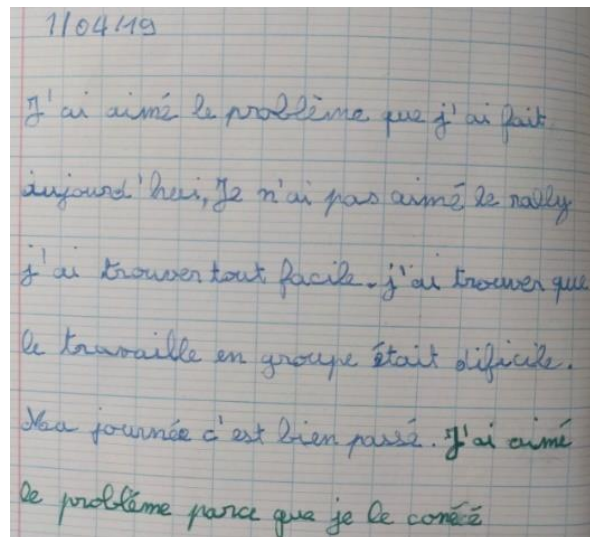 1/04/19
J'ai aimé le problème que j'ai fait
aujourd'hui, Je n'ai pas aimé le rally
j'ai trouver tout facile. j'ai trouver que
le travaille en groupe était dificile.
Ma journée c'est bien passé. J'ai aimé
le probléme parce que je le conéé